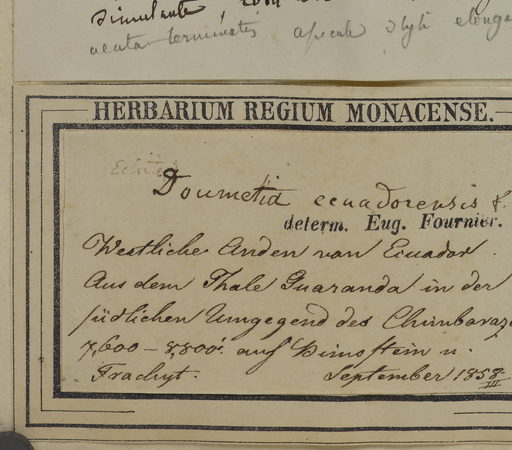 simulante,
acuta terminatis apicale styli elonga
HERBARIUM REGIUM MONACENSE.
Echites
Doumetia ecuadorensis f.
determ. Eug. Fournier.
Westliche Anden von Ecuador.
Aus dem Thale Guaranda in der
südlichen Umgegend des Chimboraz
7,600 – 8,800'. auf Bimsstein u.
Trachyt. September 1858
III